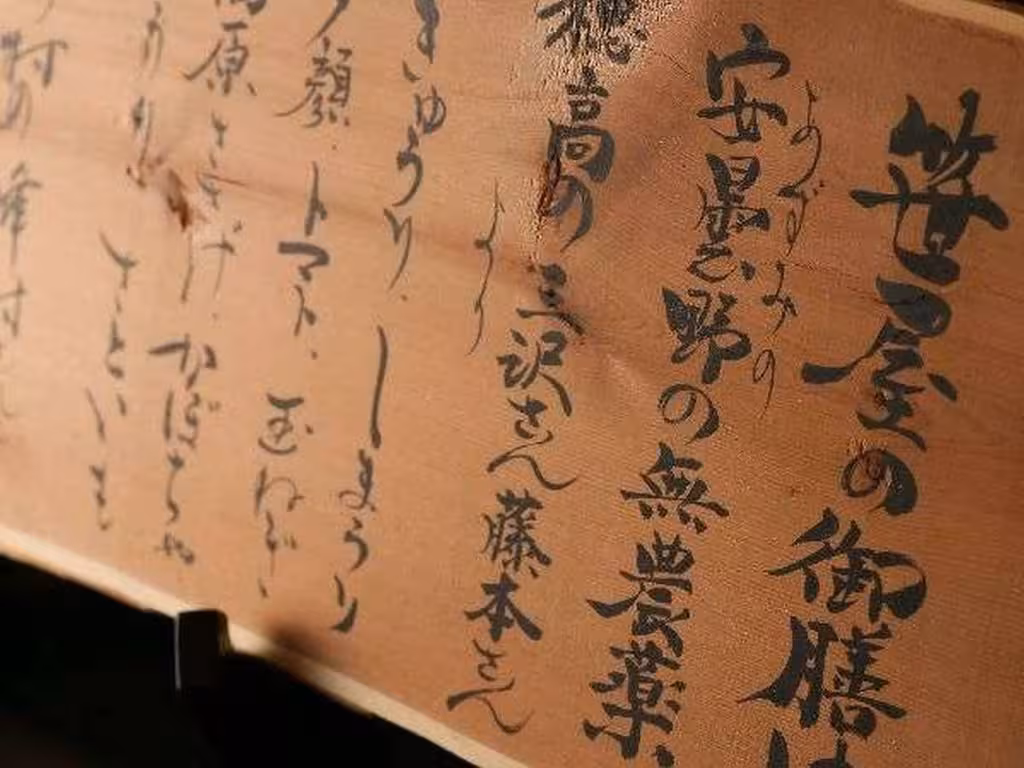 笹屋の御膳は
安曇野の無農薬
よりずみのの
穂高の三沢さん藤本さん
より
きゅうり、しまうり
夕顔 トマト、玉ねぎ、
高原 ささげ、かぼちゃ
さといも